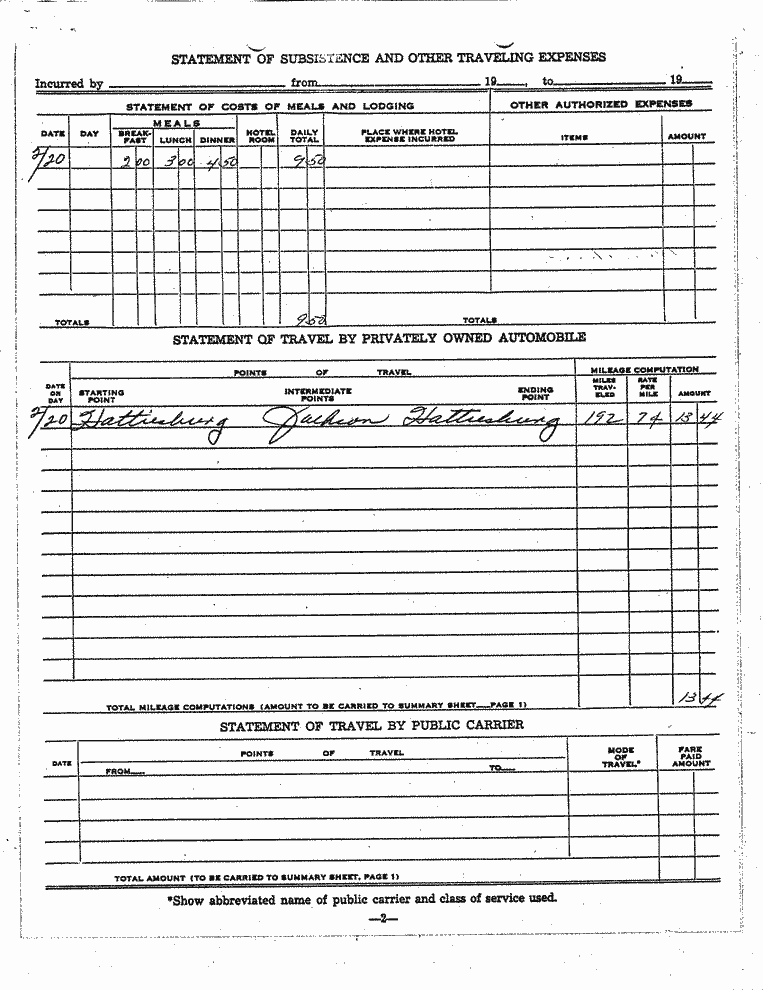 STATEMENT OF SUBSISTENCE AND OTHER TRAVELING EXPENSES
Incurred by from 19 , to 19
STATEMENT OF COSTS OF MEALS AND LODGING OTHER AUTHORIZED EXPENSES
DATE DAY MEALS HOTEL ROOM DAILY TOTAL PLACE WHERE HOTEL EXPENSE INCURRED ITEMS AMOUNT
BREAK-FAST LUNCH DINNER
2/20 2 00 3 00 4 50 9 50
TOTALS 9 50 TOTALS
STATEMENT OF TRAVEL BY PRIVATELY OWNED AUTOMOBILE
POINTS OF TRAVEL MILEAGE COMPUTATION
DATE OR DAY STARTING POINT INTERMEDIATE POINTS ENDING POINT MILES TRAV-ELED RATE PER MILE AMOUNT
2/20 Hattiesburg Jackson Hattiesburg 192 7¢ 13 44
TOTAL MILEAGE COMPUTATIONS (AMOUNT TO BE CARRIED TO SUMMARY SHEET PAGE 1) 13 44
STATEMENT OF TRAVEL BY PUBLIC CARRIER
DATE POINTS OF TRAVEL MODE OF TRAVEL* FARE PAID AMOUNT
FROM TO
TOTAL AMOUNT (TO BE CARRIED TO SUMMARY SHEET, PAGE 1)
*Show abbreviated name of public carrier and class of service used.
—2—